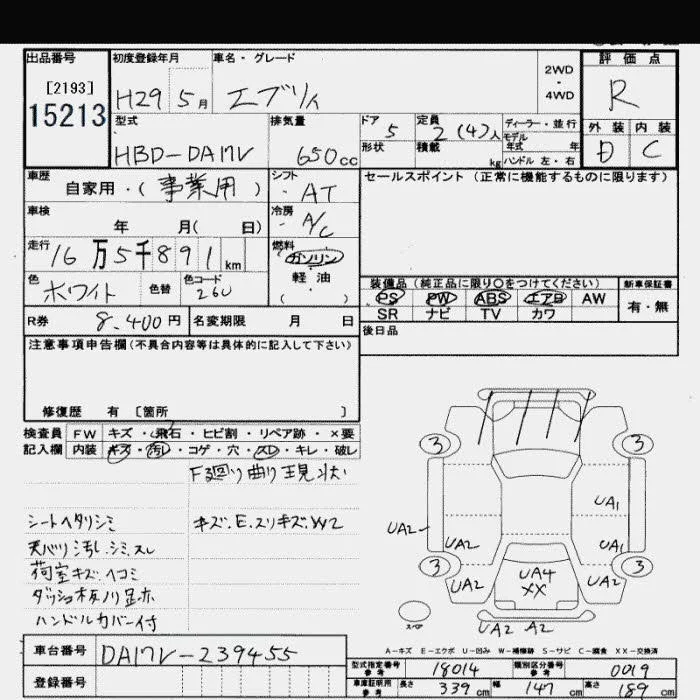 出品番号 初度登録年月 車名・グレード 評価点
[2193] 2WD
15213 H29 5月 エブリイ ・ R
4WD
型式 排気量 ドア 5 定員 2(4)人 ディーラー・並行 外装 内装
モデル
HBD-DA17V 650cc 形状 積載 kg 年式 年 D C
ハンドル 左・右
車歴 シフト セールスポイント (正常に機能するものに限ります)
自家用・(事業用) AT
車検 冷房
年 月( 日) A/C
走行 燃料
16万5千891km ガソリン
軽・油
色 色替 色コード ( )
ホワイト 26U
装備品(純正品に限り○をつけてください) 新車保証書
PS PW ABS エアB AW 有・無
SR ナビ TV カワ
R券 8,400円 名変期限 月 日
後日品
注意事項申告欄(不具合内容等は具体的に記入して下さい)
修復歴 有 [箇所 ]
検査員 FW キズ・飛石・ヒビ割・リペア跡・×要
記入欄 内装 キズ・汚レ・コゲ・穴・スレ・キレ・破レ
F廻り曲り現状
シートヘタリシミ キズ.E.スリキズ.W2
天バリ汚レ.シミ.スレ
荷室キズ.ヘコミ
ハンドルカバー付
3 3
UA1
UA2 UA2 UA1
3 3
UA2 UA4 UA2
XX
スペア
UA2 A2
A-キズ E-エクボ U-凹み W-補修跡 S-サビ C-腐食 XX-交換済
車台番号 DA17V-239455
登録番号
型式指定番号 参考 18014 類別区分番号 参考 0019
車庫証明用 参考 長さ 339cm 幅 147cm 高さ 189cm